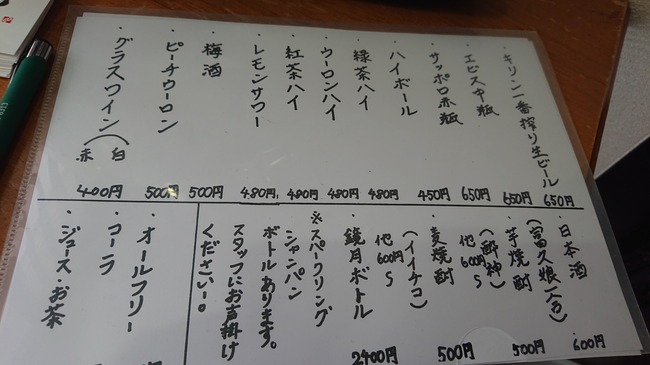 ・キリン一番搾り生ビール 650円
・エビス中瓶 650円
・サッポロ赤瓶 650円
・ハイボール 450円
・緑茶ハイ 480円
・ウーロンハイ 480円
・紅茶ハイ 480円
・レモンサワー 480円
・梅酒 500円
・ピーチウーロン 500円
・グラスワイン(白 赤) 400円
・日本酒 600円
(富久娘
・芋焼酎 500円
(酔神)
他600円〜
・麦焼酎 500円
(イイチコ)
他600円〜
・鏡月ボトル 2400円
※スパークリング
シャンパン
ボトルあります。
スタッフにお声掛け
くださいー。
・オールフリー
・コーラ
・ジュース・お茶